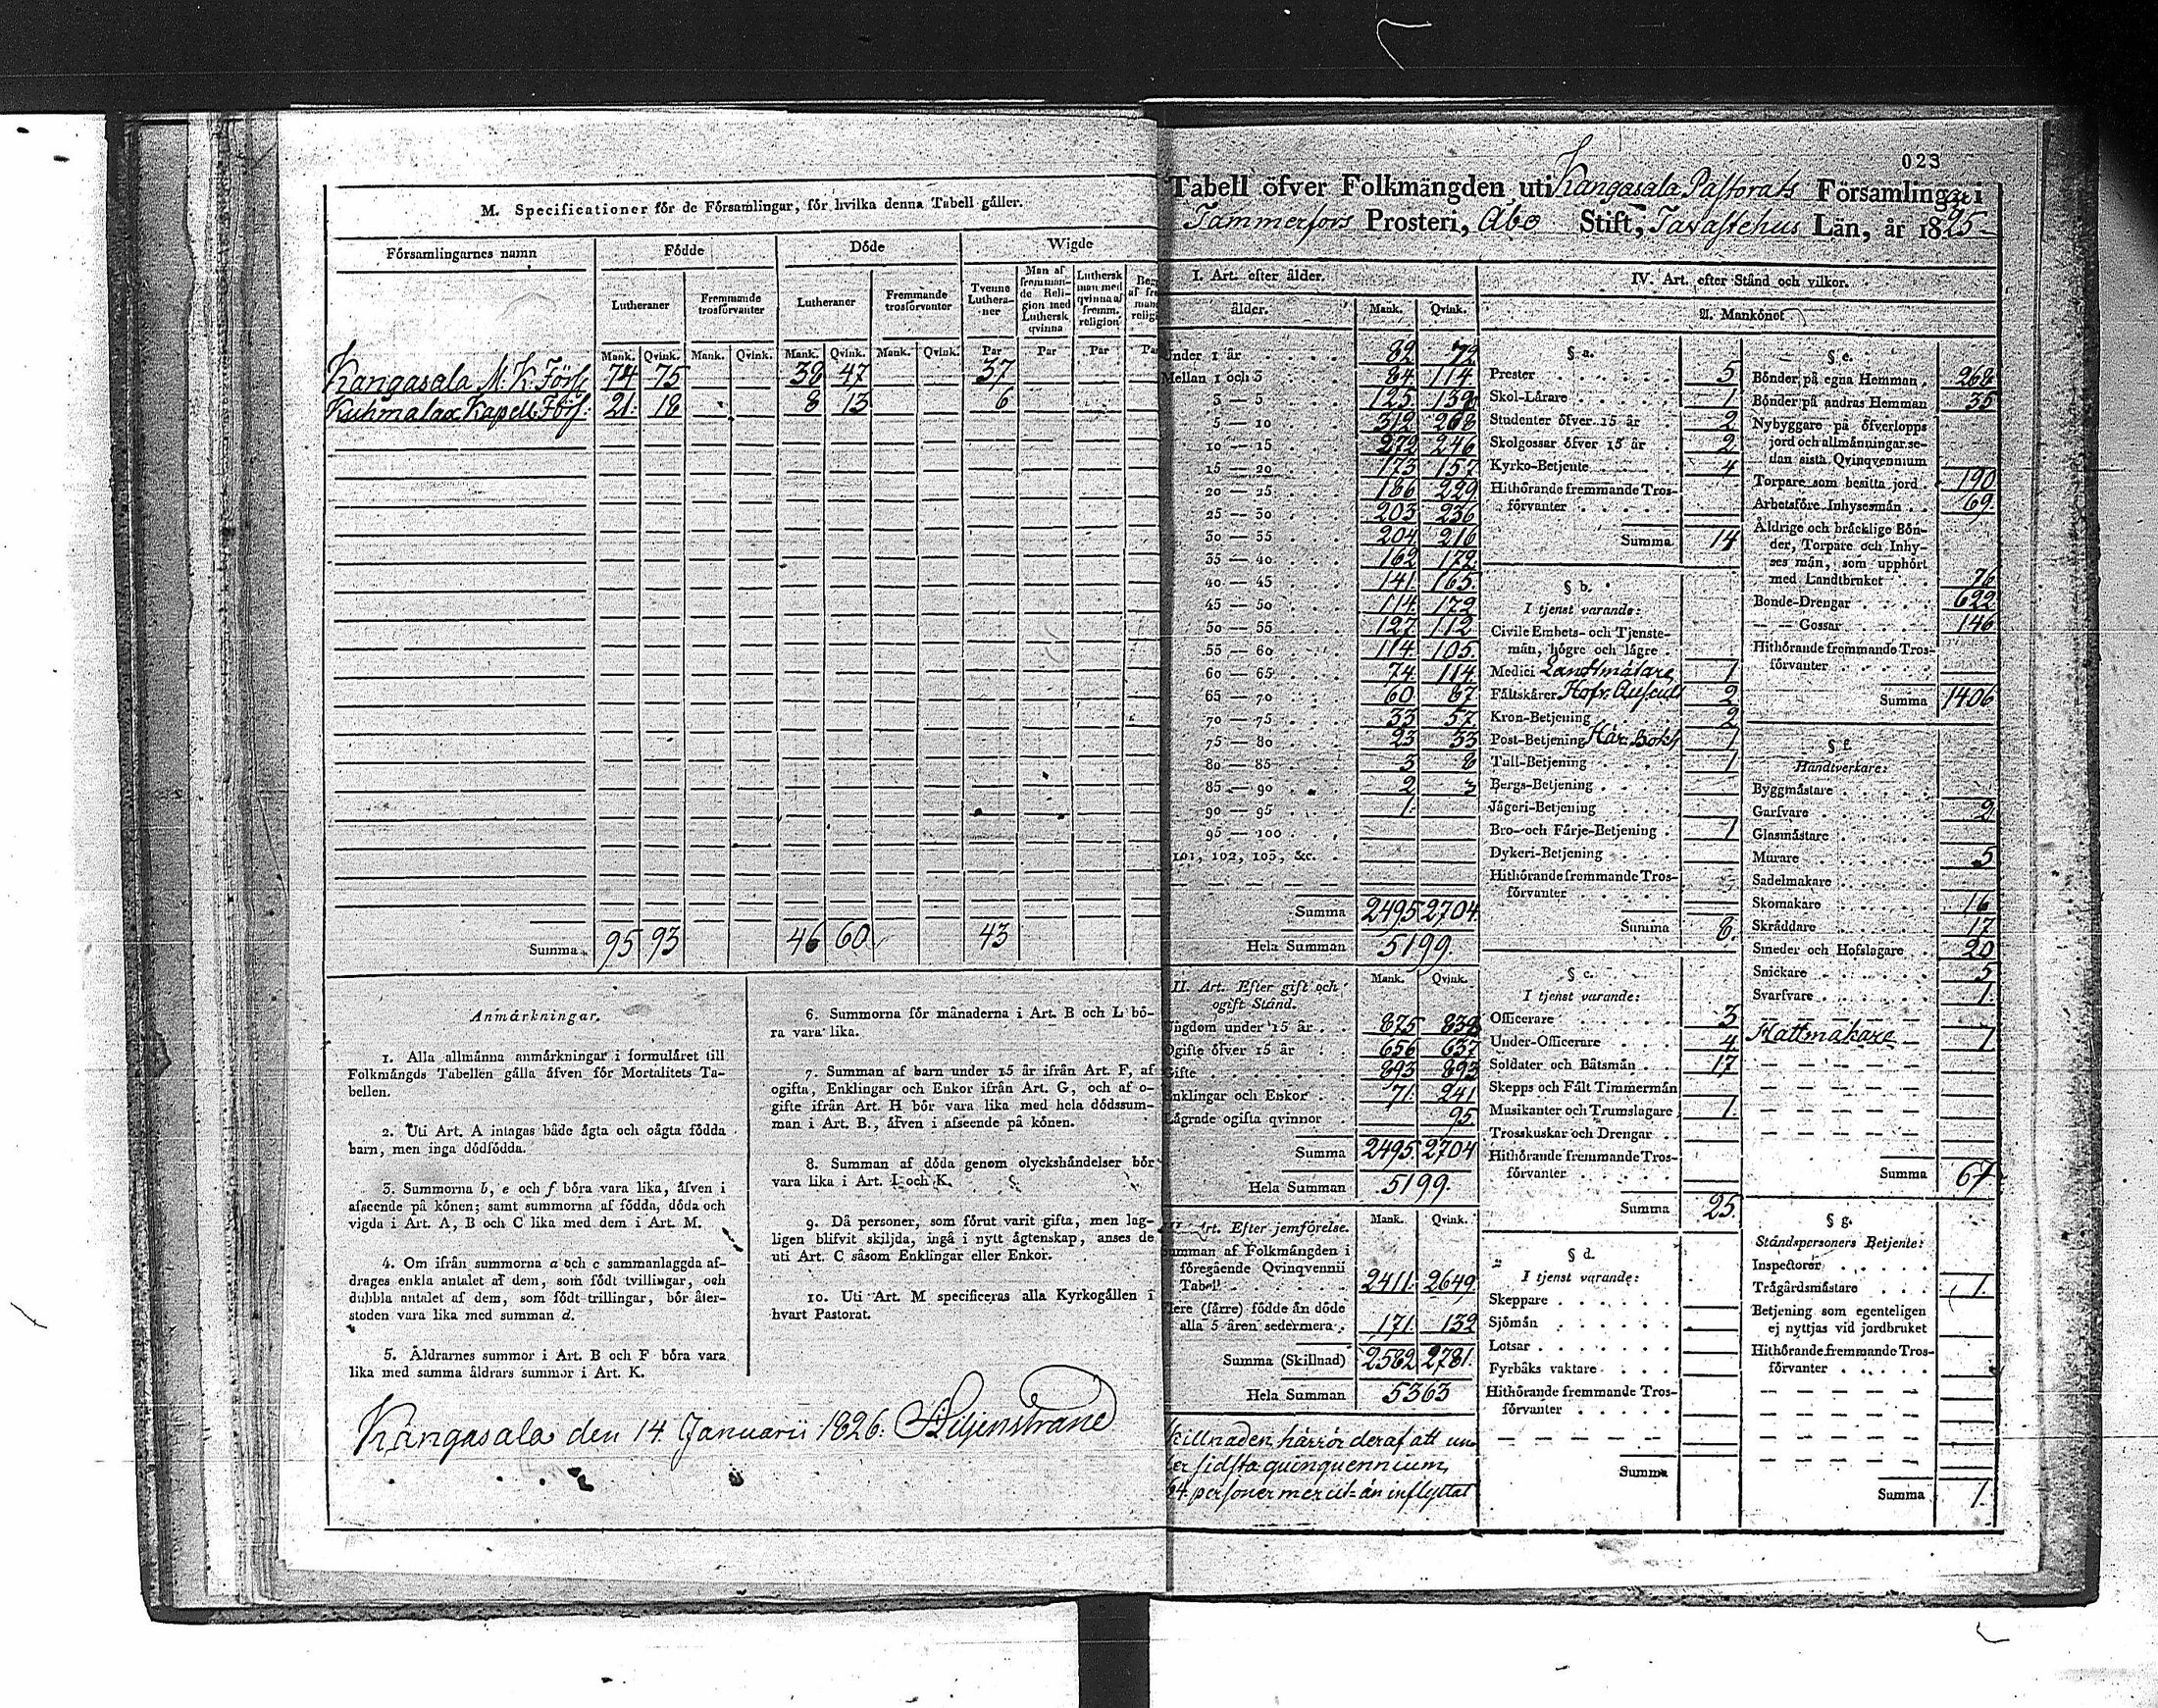 M. Specificationer för de Församlingar, för hvilka denna Tabell gäller.
Församlingarnes namn Födde Döde Wigde
Lutheraner Fremmande trosförvanter Lutheraner Fremmande trosförvanter Tvenne Lutheraner Man af fremmande Religion med Luthersk qvinna Luthersk man med qvinna af fremm. religion
Mank. Qvink. Mank. Qvink. Mank. Qvink. Mank. Qvink. Par Par Par
Kangasala M. K. Förs. 74 75 38 47 37
Kuhmalax Kapell Förs. 21 18 8 13 6
Summa 95 93 46 60 43
Anmärkningar.
1. Alla allmänna anmärkningar i formuläret till
Folkmängds Tabellen gälla äfven för Mortalitets Ta-
bellen.
2. Uti Art. A intagas både ägta och oägta födda
barn, men inga dödfödda.
3. Summorna b, e och f böra vara lika, äfven i
afseende på könen; samt summorna af födda, döda och
vigda i Art. A, B och C lika med dem i Art. M.
4. Om ifrån summorna a och c sammanlaggda af-
drages enkla antalet af dem, som födt tvillingar, och
dubbla antalet af dem, som födt trillingar, bör åter-
stoden vara lika med summan d.
5. Åldrarnes summor i Art. B och F böra vara
lika med samma åldrars summor i Art. K.
6. Summorna för månaderna i Art. B och L bö-
ra vara lika.
7. Summan af barn under 15 år ifrån Art. F, af
ogifta, Enklingar och Enkor ifrån Art. G, och af o-
gifte ifrån Art. H bör vara lika med hela dödssum-
man i Art. B., äfven i afseende på könen.
8. Summan af döda genom olyckshändelser bör
vara lika i Art. I och K.
9. Då personer, som förut varit gifta, men lag-
ligen blifvit skiljda, ingå i nytt ägtenskap, anses de
uti Art. C såsom Enklingar eller Enkor.
10. Uti Art. M specificeras alla Kyrkogällen i
hvart Pastorat.
Kangasala den 14 Januarii 1826. Liljenstrand
023
Tabell öfver Folkmängden uti Kangasala Pastorats Församlingar i
Tammerfors Prosteri, Åbo Stift, Tavastehus Län, år 1825
I. Art. efter ålder.
ålder. Mank. Qvink.
Under 1 år 82 72
Mellan 1 och 3 84 114
3 — 5 125 139
5 — 10 312 268
10 — 15 272 246
15 — 20 173 157
20 — 25 186 229
25 — 30 203 236
30 — 35 204 216
35 — 40 162 172
40 — 45 141 165
45 — 50 114 172
50 — 55 127 112
55 — 60 114 105
60 — 65 74 114
65 — 70 60 87
70 — 75 33 57
75 — 80 23 33
80 — 85 3 8
85 — 90 2 3
90 — 95 1
95 — 100
101, 102, 103, &c.
Summa 2495 2704
Hela Summan 5199.
II. Art. Efter gift och ogift Stånd. Mank. Qvink.
Ungdom under 15 år 875 838
Ogifte öfver 15 år 656 637
Gifte 893 893
Enklingar och Enkor 71 241
Lägrade ogifta qvinnor 95
Summa 2495 2704
Hela Summan 5199.
Art. Efter jemförelse. Mank. Qvink.
Summan af Folkmängden i
föregående Qvinqvennii
Tabell 2411 2649
Flere (färre) födde än döde
alla 5 åren sedermera 171 132
Summa (Skillnad) 2582 2781
Hela Summan 5363
Skillnaden härrör deraf att un-
der sidsta quinquennium,
64 personer mer ut- än inflyttat
IV. Art. efter Stånd och vilkor.
A. Mankönet
§ a.
Prester 5
Skol-Lärare 1
Studenter öfver 15 år 2
Skolgossar öfver 15 år 2
Kyrko-Betjente 4
Hithörande fremmande Tros-
förvanter
Summa 14
§ b.
I tjenst varande:
Civile Embets- och Tjenste-
män, högre och lägre
Medici Landtmätare 1
Fältskärer Hofr. Auscult 2
Kron-Betjening 2
Post-Betjening Här. Bokh 1
Tull-Betjening 1
Bergs-Betjening
Jägeri-Betjening
Bro- och Färje-Betjening 1
Dykeri-Betjening
Hithörande fremmande Tros-
förvanter
Summa 8.
§ c.
I tjenst varande:
Officerare 3
Under-Officerare 4
Soldater och Båtsmän 17
Skepps och Fält Timmermän
Musikanter och Trumslagare 1
Trosskuskar och Drengar
Hithörande fremmande Tros-
förvanter
Summa 25.
§ d.
I tjenst varande:
Skeppare
Sjömän
Lotsar
Fyrbåks vaktare
Hithörande fremmande Tros-
förvanter
Summa
§ e.
Bönder på egna Hemman 268
Bönder på andras Hemman 35
Nybyggare på öfverlopps
jord och allmänningar se-
dan sista Qvinqvennium
Torpare som besitta jord 190
Arbetsföre Inhysesmän 69.
Åldrige och bräcklige Bön-
der, Torpare och Inhy-
ses män, som upphört
med Landtbruket 76
Bonde-Drengar 622
— — Gossar 146
Hithörande fremmande Tros-
förvanter
Summa 1406
§ f.
Handtverkare:
Byggmästare
Garfvare 2
Glasmästare
Murare 5
Sadelmakare
Skomakare 16
Skräddare 17
Smeder och Hofslagare 20
Snickare 5
Svarfvare 1
Hattmakare 1
Summa 67
§ g.
Ståndspersoners Betjente:
Inspectorer
Trägårdsmästare 1.
Betjening som egenteligen
ej nyttjas vid jordbruket
Hithörande fremmande Tros-
förvanter
Summa 1.